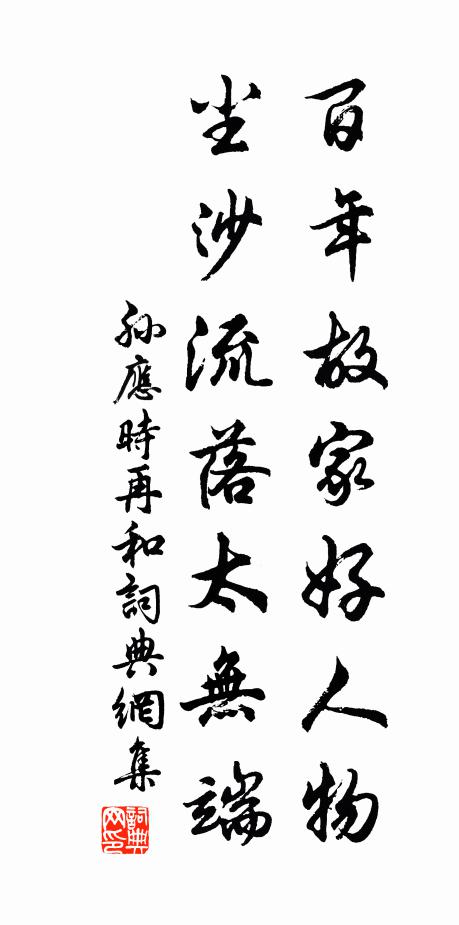 百年故家好人物
尘沙流落太無端
孫應時再和詞典網集
詞典网印